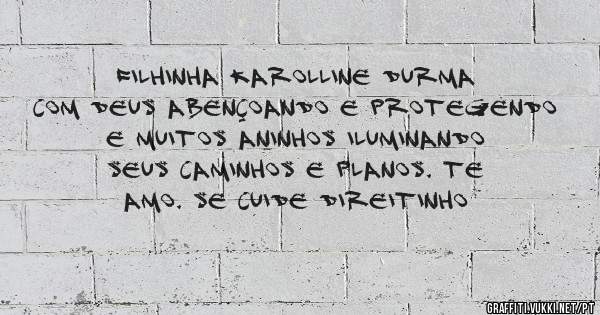 FILHINHA KAROLLINE DURMA
COM DEUS ABENÇOANDO E PROTEGENDO
E MUITOS ANINHOS ILUMINANDO
SEUS CAMINHOS E PLANOS. TE
AMO. SE CUIDE DIREITINHO
GRAFFITI.VUKKI.NET/PT